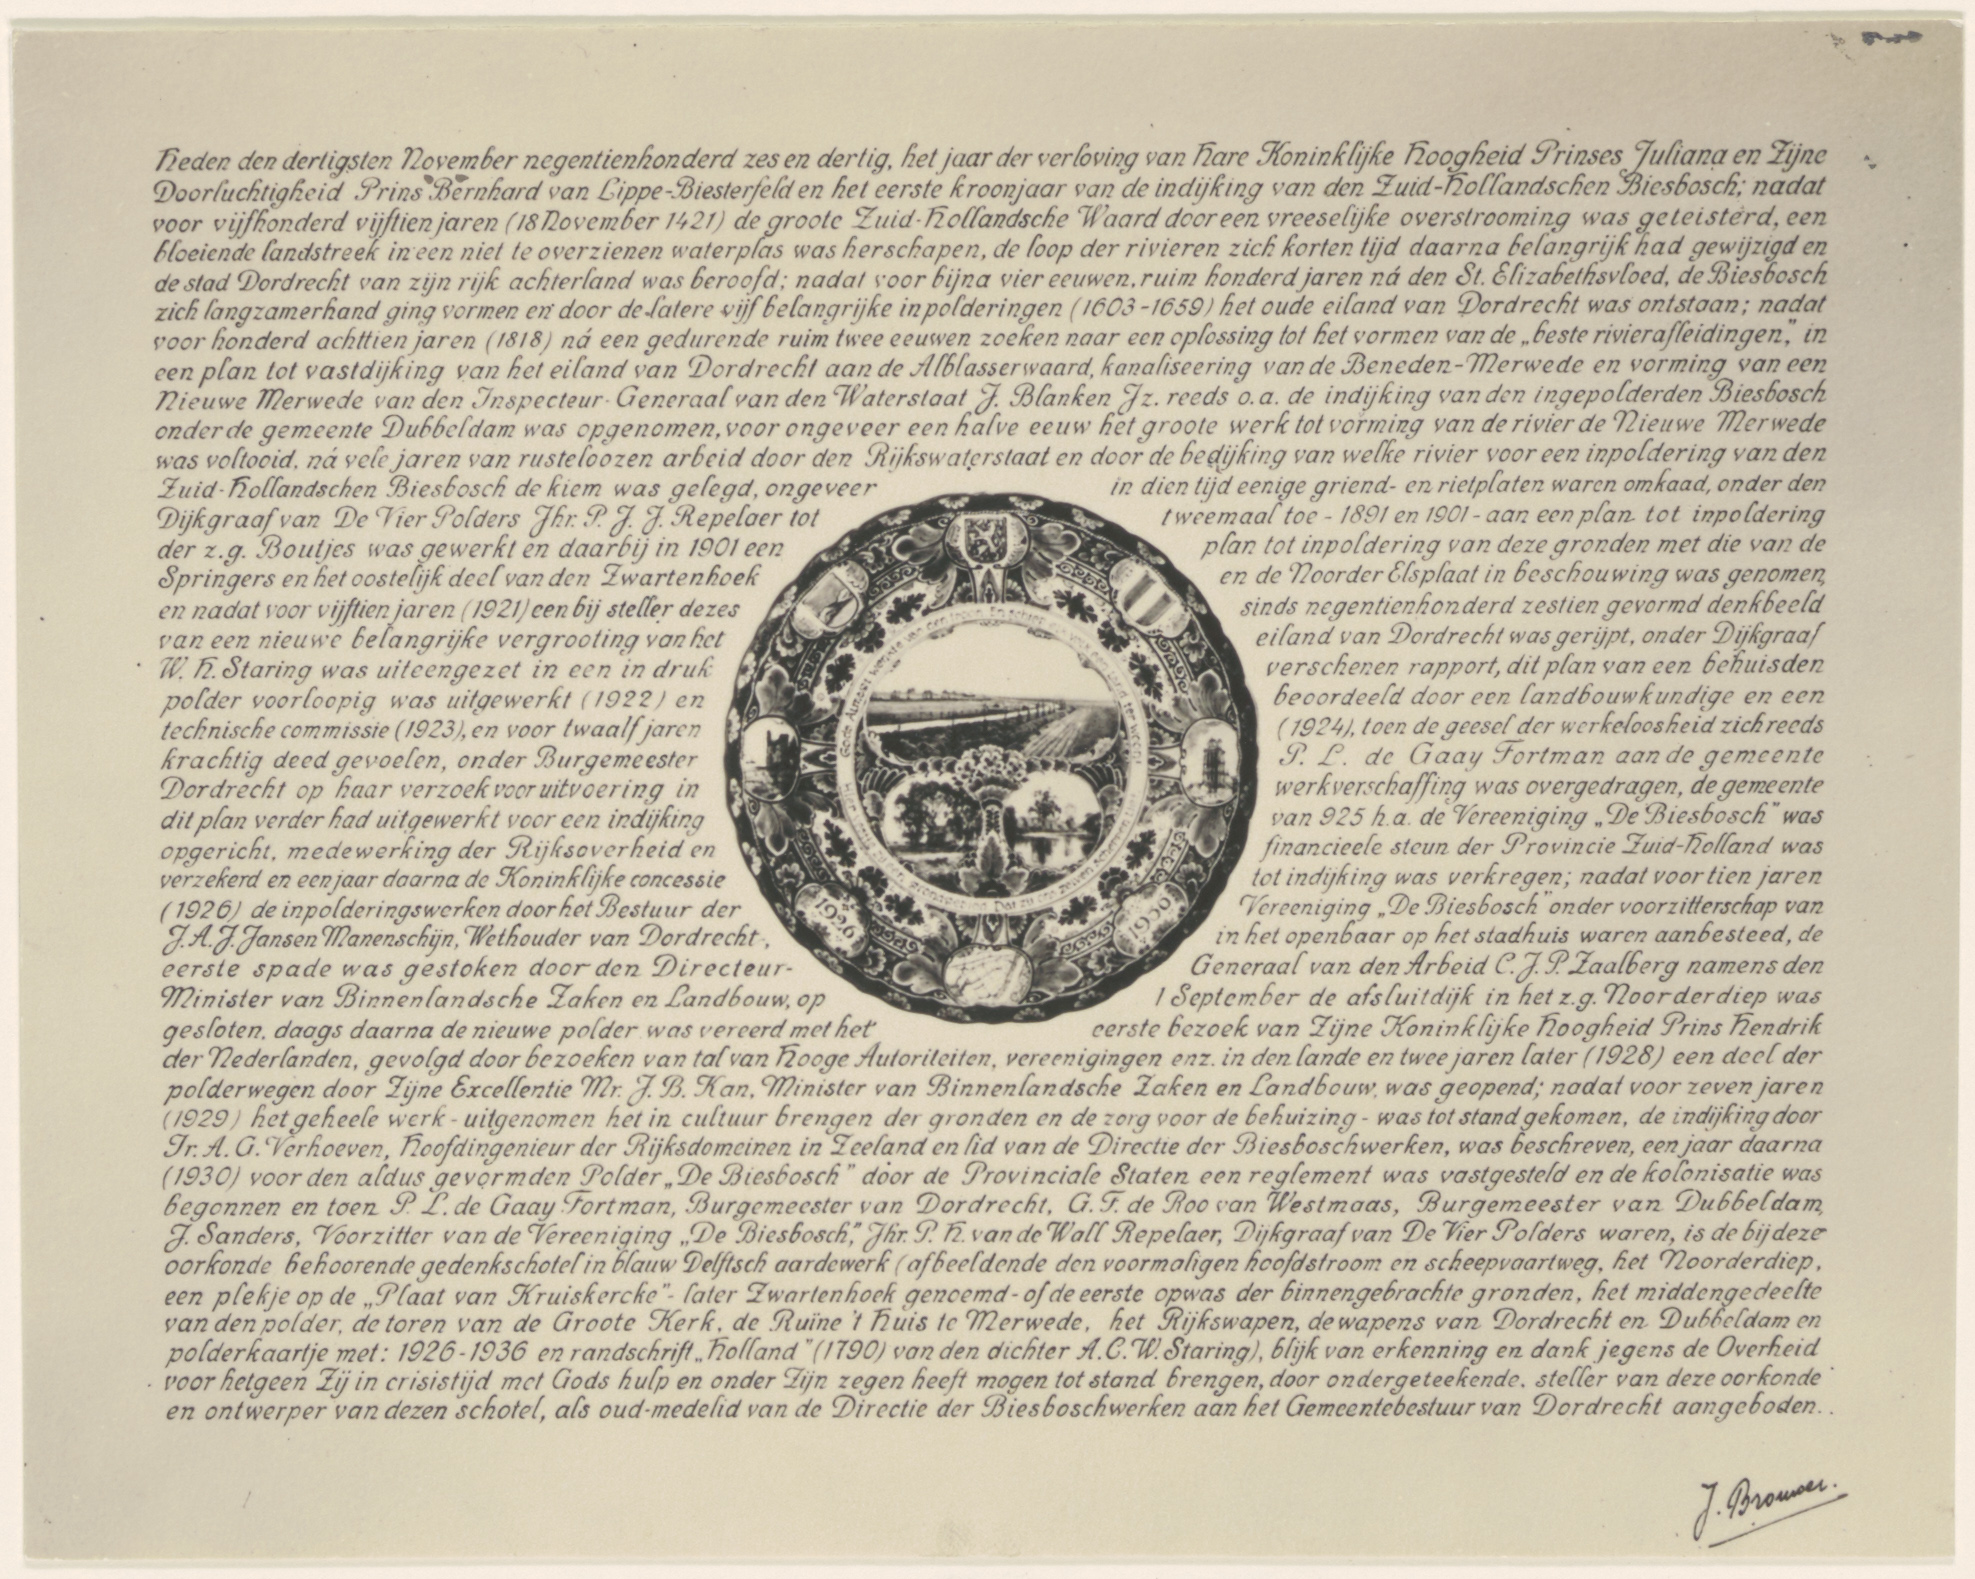 Heden den dertigsten November negentienhonderd zes en dertig, het jaar der verloving van Hare Koninklijke Hoogheid Prinses Juliana en Zijne
Doorluchtigheid Prins Bernhard van Lippe-Biesterfeld en het eerste kroonjaar van de indijking van den Zuid-Hollandschen Biesbosch; nadat
voor vijfhonderd vijftien jaren (18 November 1421) de groote Zuid-Hollandsche Waard door een vreeselijke overstrooming was geteisterd, een
bloeiende landstreek in een niet te overzienen waterplas was herschapen, de loop der rivieren zich korten tijd daarna belangrijk had gewijzigd en
de stad Dordrecht van zijn rijk achterland was beroofd; nadat voor bijna vier eeuwen, ruim honderd jaren ná den St. Elizabethsvloed, de Biesbosch
zich langzamerhand ging vormen en door de latere vijf belangrijke inpolderingen (1603-1659) het oude eiland van Dordrecht was ontstaan; nadat
voor honderd achttien jaren (1818) ná een gedurende ruim twee eeuwen zoeken naar een oplossing tot het vormen van de „beste rivierafleidingen", in
een plan tot vastdijking van het eiland van Dordrecht aan de Alblasserwaard, kanaliseering van de Beneden-Merwede en vorming van een
Nieuwe Merwede van den Inspecteur-Generaal van den Waterstaat J. Blanken Jz. reeds o.a. de indijking van den ingepolderden Biesbosch
onder de gemeente Dubbeldam was opgenomen, voor ongeveer een halve eeuw het groote werk tot vorming van de rivier de Nieuwe Merwede
was voltooid, ná vele jaren van rusteloozen arbeid door den Rijkswaterstaat en door de bedijking van welke rivier voor een inpoldering van den
Zuid-Hollandschen Biesbosch de kiem was gelegd, ongeveer in dien tijd eenige griend- en rietplaten waren omkaad, onder den
Dijkgraaf van De Vier Polders Jhr. P. J. J. Repelaer tot tweemaal toe - 1891 en 1901 - aan een plan tot inpoldering
der z.g. Boutjes was gewerkt en daarbij in 1901 een plan tot inpoldering van deze gronden met die van de
Springers en het oostelijk deel van den Zwartenhoek en de Noorder Elsplaat in beschouwing was genomen,
en nadat voor vijftien jaren (1921) een bij steller dezes sinds negentienhonderd zestien gevormd denkbeeld
van een nieuwe belangrijke vergrooting van het eiland van Dordrecht was gerijpt, onder Dijkgraaf
W. H. Staring was uiteengezet in een in druk verschenen rapport, dit plan van een behuisden
polder voorloopig was uitgewerkt (1922) en beoordeeld door een landbouwkundige en een
technische commissie (1923), en voor twaalf jaren (1924), toen de geesel der werkeloosheid zich reeds
krachtig deed gevoelen, onder Burgemeester P. L. de Gaay Fortman aan de gemeente
Dordrecht op haar verzoek voor uitvoering in werkverschaffing was overgedragen, de gemeente
dit plan verder had uitgewerkt voor een indijking van 925 h.a. de Vereeniging „De Biesbosch" was
opgericht, medewerking der Rijksoverheid en financieele steun der Provincie Zuid-Holland was
verzekerd en een jaar daarna de Koninklijke concessie tot indijking was verkregen; nadat voor tien jaren
(1926) de inpolderingswerken door het Bestuur der Vereeniging „De Biesbosch" onder voorzitterschap van
J.A.J. Jansen Manenschijn, Wethouder van Dordrecht, in het openbaar op het stadhuis waren aanbesteed, de
eerste spade was gestoken door den Directeur-Generaal van den Arbeid C. J. P. Zaalberg namens den
Minister van Binnenlandsche Zaken en Landbouw, op 1 September de afsluitdijk in het z.g. Noorderdiep was
gesloten, daags daarna de nieuwe polder was vereerd met het eerste bezoek van Zijne Koninklijke Hoogheid Prins Hendrik
der Nederlanden, gevolgd door bezoeken van tal van Hooge Autoriteiten, vereenigingen enz. in den lande en twee jaren later (1928) een deel der
polderwegen door Zijne Excellentie Mr. J. B. Kan, Minister van Binnenlandsche Zaken en Landbouw, was geopend; nadat voor zeven jaren
(1929) het geheele werk - uitgenomen het in cultuur brengen der gronden en de zorg voor de behuizing - was tot stand gekomen, de indijking door
Ir. A. G. Verhoeven, Hoofdingenieur der Rijksdomeinen in Zeeland en lid van de Directie der Biesboschwerken, was beschreven, een jaar daarna
(1930) voor den aldus gevormden Polder „De Biesbosch" door de Provinciale Staten een reglement was vastgesteld en de kolonisatie was
begonnen en toen P. L. de Gaay Fortman, Burgemeester van Dordrecht, G. F. de Roo van Westmaas, Burgemeester van Dubbeldam,
J. Sanders, Voorzitter van de Vereeniging „De Biesbosch", Jhr. P. H. van de Wall Repelaer, Dijkgraaf van De Vier Polders waren, is de bij deze
oorkonde behoorende gedenkschotel in blauw Delftsch aardewerk (afbeeldende den voormaligen hoofdstroom en scheepvaartweg, het Noorderdiep,
een plekje op de „Plaat van Kruiskercke" - later Zwartenhoek genoemd - of de eerste opwas der binnengebrachte gronden, het middengedeelte
van den polder, de toren van de Groote Kerk, de Ruïne 't Huis te Merwede, het Rijkswapen, de wapens van Dordrecht en Dubbeldam en
polderkaartje met: 1926-1936 en randschrift „Holland" (1790) van den dichter A.C.W. Staring), blijk van erkenning en dank jegens de Overheid
voor hetgeen Zij in crisistijd met Gods hulp en onder Zijn zegen heeft mogen tot stand brengen, door ondergeteekende, steller van deze oorkonde
en ontwerper van dezen schotel, als oud-medelid van de Directie der Biesboschwerken aan het Gemeentebestuur van Dordrecht aangeboden.
1926
1936
J. Brouwer.